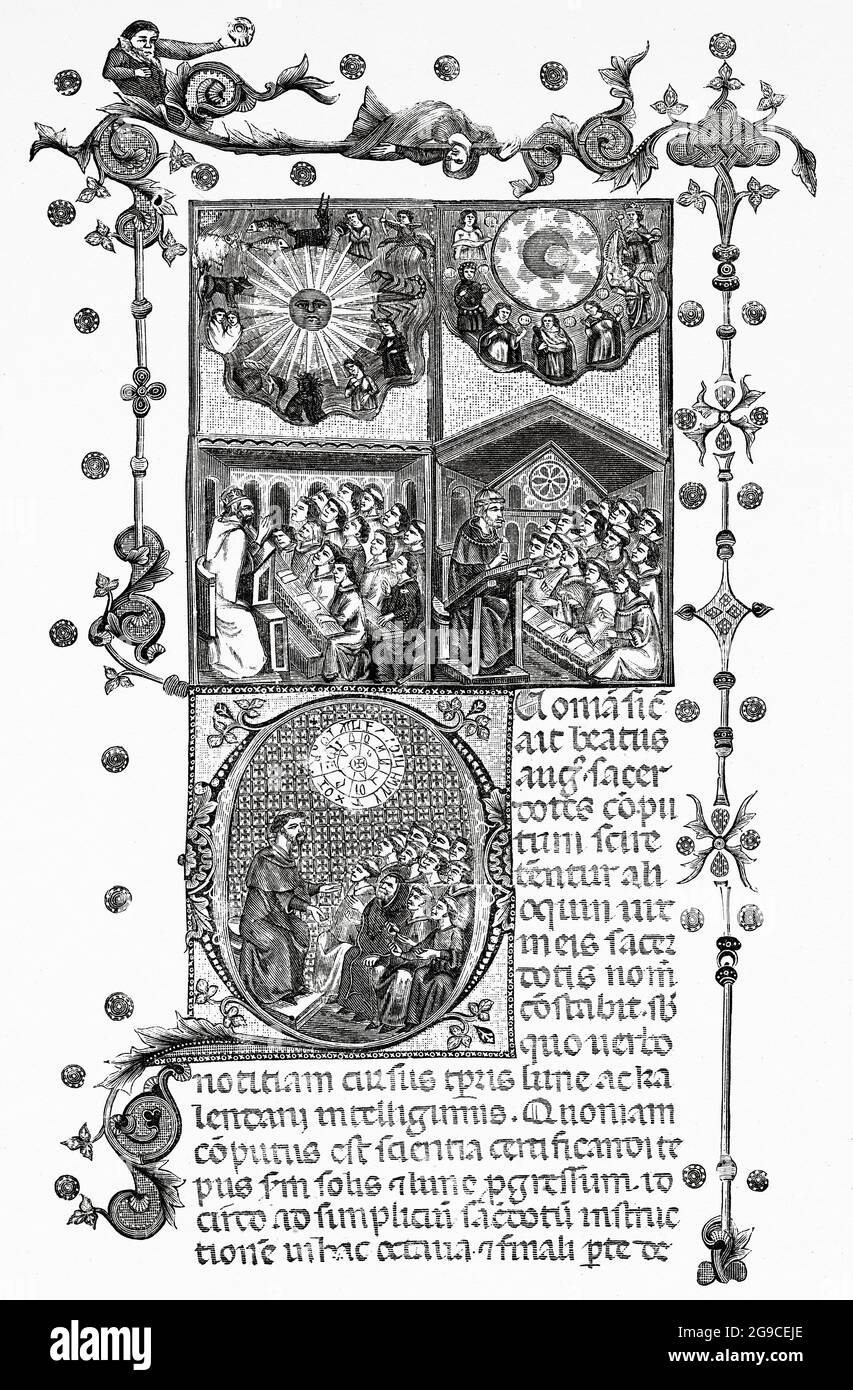 Uomā sic̄
ait beatus
augꝰ. sacer
dotes cōpu
tum scire
tēntur ali
oquin uix
in eis sacer
dotis nom̄
cōstabit. sb̄
quo uerbo
notitiam cursus tp̄ris lune ac ka
lendarij intelligimus. Quoniam
cōputus est scientia certificandi te
pus sm̄ solis ⁊ lune ꝓgressum. id
circo ad simpliciū sac̄dotū instruc
tionē in hac octaua ⁊ finali ꝑte de
alamy
Image ID: 2G9CEJE
www.alamy.com